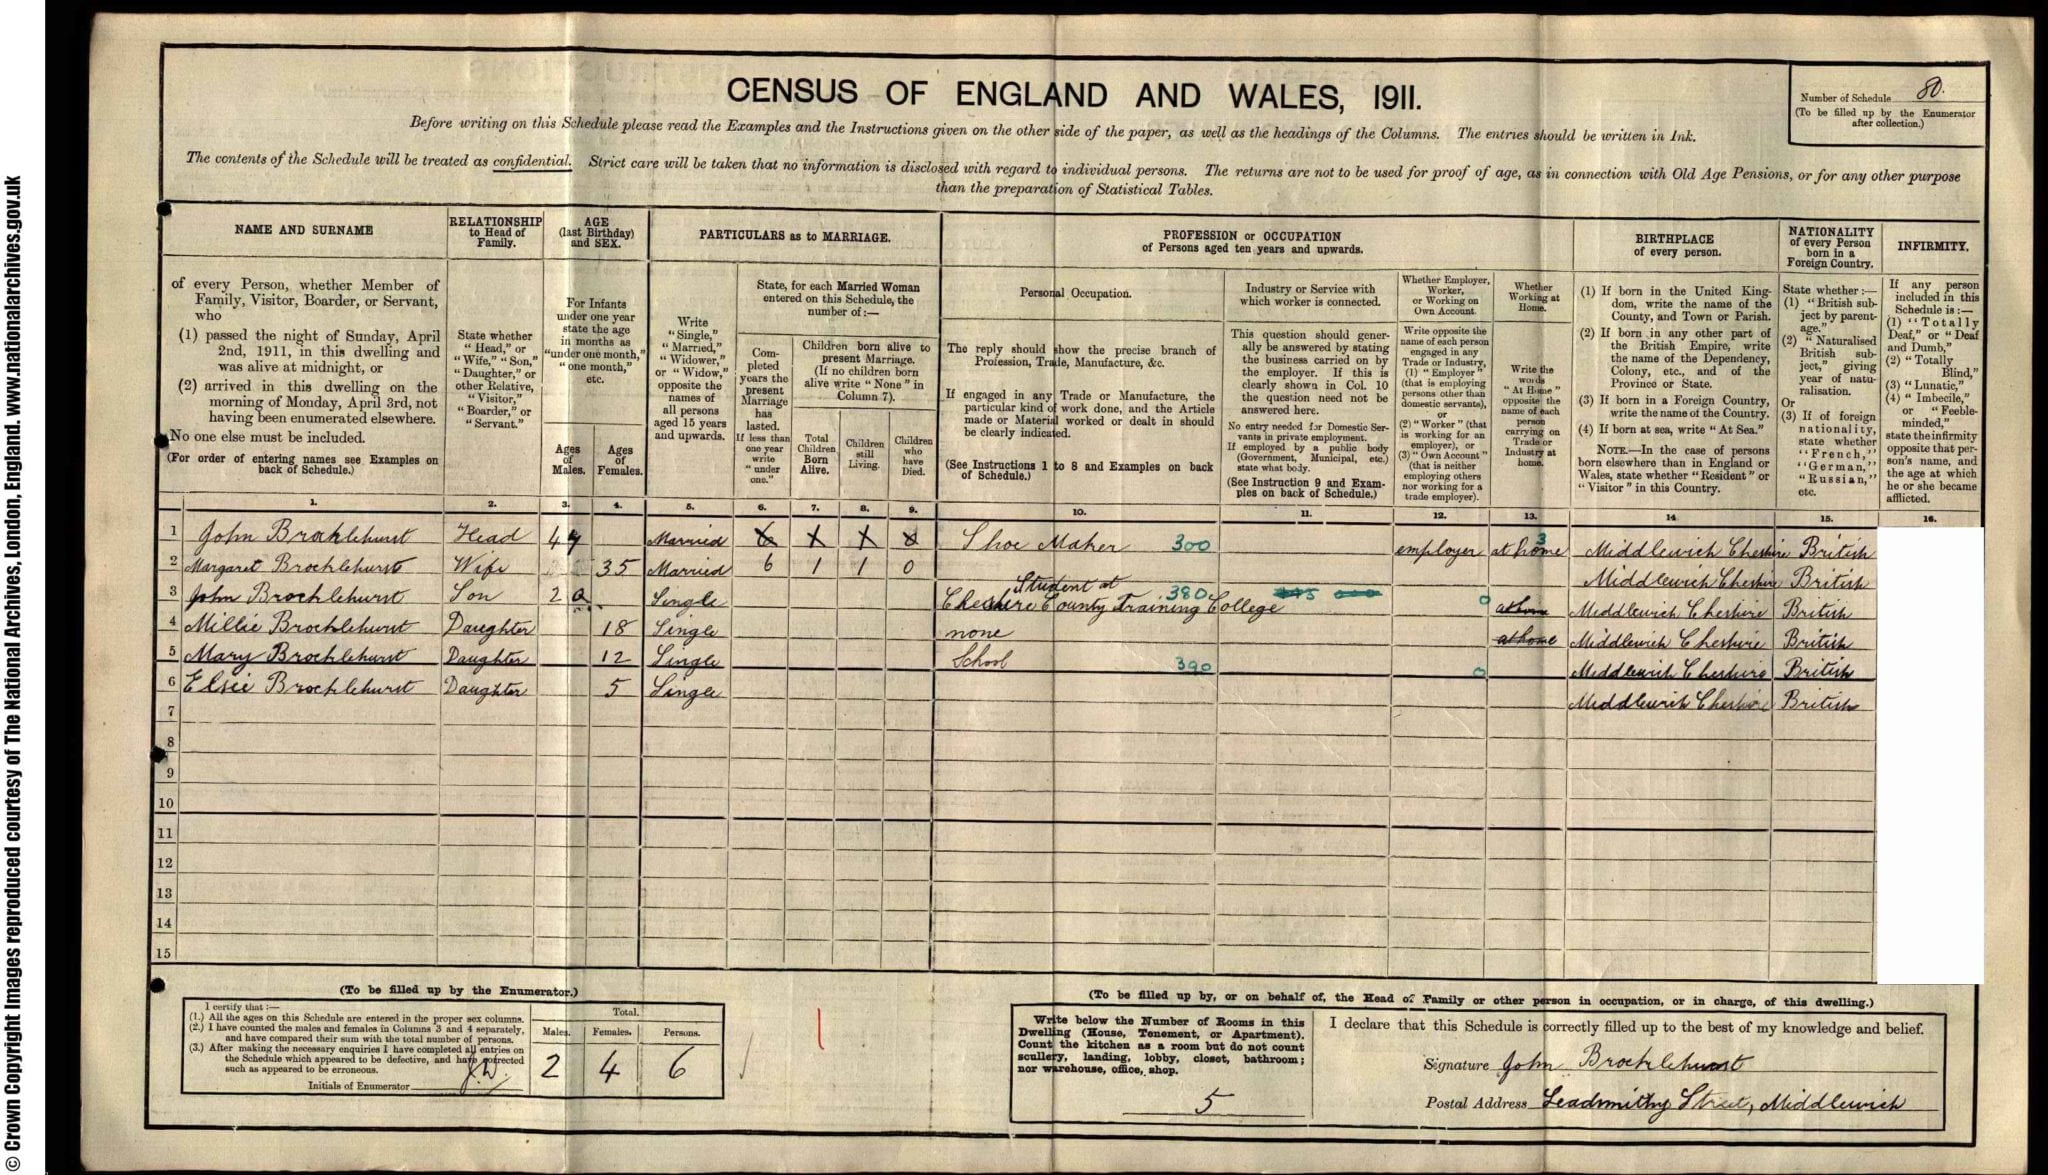 © Crown Copyright Images reproduced courtesy of The National Archives, London, England. www.nationalarchives.gov.uk
CENSUS OF ENGLAND AND WALES, 1911.
Number of Schedule 80.
(To be filled up by the Enumerator
after collection.)
Before writing on this Schedule please read the Examples and the Instructions given on the other side of the paper, as well as the headings of the Columns. The entries should be written in Ink.
The contents of the Schedule will be treated as confidential. Strict care will be taken that no information is disclosed with regard to individual persons. The returns are not to be used for proof of age, as in connection with Old Age Pensions, or for any other purpose
than the preparation of Statistical Tables.
NAME AND SURNAME
of every Person, whether Member of
Family, Visitor, Boarder, or Servant,
who
(1) passed the night of Sunday, April
2nd, 1911, in this dwelling and
was alive at midnight, or
(2) arrived in this dwelling on the
morning of Monday, April 3rd, not
having been enumerated elsewhere.
No one else must be included.
(For order of entering names see Examples on
back of Schedule.)
RELATIONSHIP
to Head of
Family.
State whether
"Head," or
"Wife," "Son,"
"Daughter," or
other Relative,
"Visitor,"
"Boarder," or
"Servant."
AGE
(last Birthday)
and SEX.
For Infants
under one year
state the age
in months as
"under one month,"
"one month,"
etc.
Ages
of
Males.
Ages
of
Females.
PARTICULARS as to MARRIAGE.
Write
"Single,"
"Married,"
"Widower,"
or "Widow,"
opposite the
names of
all persons
aged 15 years
and upwards.
State, for each Married Woman
entered on this Schedule, the
number of:—
Com-
pleted
years the
present
Marriage
has
lasted.
If less than
one year
write
"under
one."
Children born alive to
present Marriage.
(If no children born
alive write "None" in
Column 7).
Total
Children
Born
Alive.
Children
still
Living.
Children
who
have
Died.
PROFESSION or OCCUPATION
of Persons aged ten years and upwards.
Personal Occupation.
The reply should show the precise branch of
Profession, Trade, Manufacture, &c.
If engaged in any Trade or Manufacture, the
particular kind of work done, and the Article
made or Material worked or dealt in should
be clearly indicated.
(See Instructions 1 to 8 and Examples on back
of Schedule.)
Industry or Service with
which worker is connected.
This question should gener-
ally be answered by stating
the business carried on by
the employer. If this is
clearly shown in Col. 10
the question need not be
answered here.
No entry needed for Domestic Ser-
vants in private employment.
If employed by a public body
(Government, Municipal, etc.)
state what body.
(See Instruction 9 and Exam-
ples on back of Schedule.)
Whether Employer,
Worker,
or Working on
Own Account.
Write opposite the
name of each person
engaged in any
Trade or Industry,
(1) "Employer"
(that is employing
persons other than
domestic servants),
or
(2) "Worker" (that
is working for an
employer), or
(3) "Own Account"
(that is neither
employing others
nor working for a
trade employer).
Whether
Working at
Home.
Write the
words
"At Home"
opposite the
name of each
person
carrying on
Trade or
Industry at
home.
BIRTHPLACE
of every person.
(1) If born in the United King-
dom, write the name of the
County, and Town or Parish.
(2) If born in any other part of
the British Empire, write
the name of the Dependency,
Colony, etc., and of the
Province or State.
(3) If born in a Foreign Country,
write the name of the Country.
(4) If born at sea, write "At Sea."
NOTE.—In the case of persons
born elsewhere than in England or
Wales, state whether "Resident" or
"Visitor" in this Country.
NATIONALITY
of every Person
born in a
Foreign Country.
State whether:—
(1) "British sub-
ject by parent-
age,"
(2) "Naturalised
British sub-
ject," giving
year of natu-
ralisation.
Or
(3) If of foreign
nationality,
state whether
"French,"
"German,"
"Russian,"
etc.
INFIRMITY.
If any person
included in this
Schedule is:—
(1) "Totally
Deaf," or "Deaf
and Dumb,"
(2) "Totally
Blind,"
(3) "Lunatic,"
(4) "Imbecile,"
or "Feeble-
minded,"
state the infirmity
opposite that per-
son's name, and
the age at which
he or she became
afflicted.
1. 2. 3. 4. 5. 6. 7. 8. 9. 10. 11. 12. 13. 14. 15. 16.
1 John Brocklehurst Head 47 Married 6 1 1 0 Shoe Maker 300 employer at home 3 Middlewich Cheshire British
2 Margaret Brocklehurst Wife 35 Married 6 1 1 0 Middlewich Cheshire British
3 John Brocklehurst Son 20 Single Student at Cheshire County Training College 380 0 at home Middlewich Cheshire British
4 Millie Brocklehurst Daughter 18 Single none at home Middlewich Cheshire British
5 Mary Brocklehurst Daughter 12 Single School 390 0 Middlewich Cheshire British
6 Elsie Brocklehurst Daughter 5 Single Middlewich Cheshire British
7
8
9
10
11
12
13
14
15
(To be filled up by the Enumerator.)
I certify that:—
(1.) All the ages on this Schedule are entered in the proper sex columns.
(2.) I have counted the males and females in Columns 3 and 4 separately,
and have compared their sum with the total number of persons.
(3.) After making the necessary enquiries I have completed all entries on
the Schedule which appeared to be defective, and have corrected
such as appeared to be erroneous.
Initials of Enumerator J.W.
Total.
Males. Females. Persons.
2 4 6
(To be filled up by, or on behalf of, the Head of Family or other person in occupation, or in charge, of this dwelling.)
Write below the Number of Rooms in this
Dwelling (House, Tenement, or Apartment).
Count the kitchen as a room but do not count
scullery, landing, lobby, closet, bathroom;
nor warehouse, office, shop.
5
I declare that this Schedule is correctly filled up to the best of my knowledge and belief.
Signature John Brocklehurst
Postal Address Leadsmithy Street, Middlewich